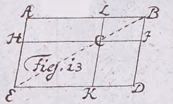 A L B
H C F
Fig. 13
E K D